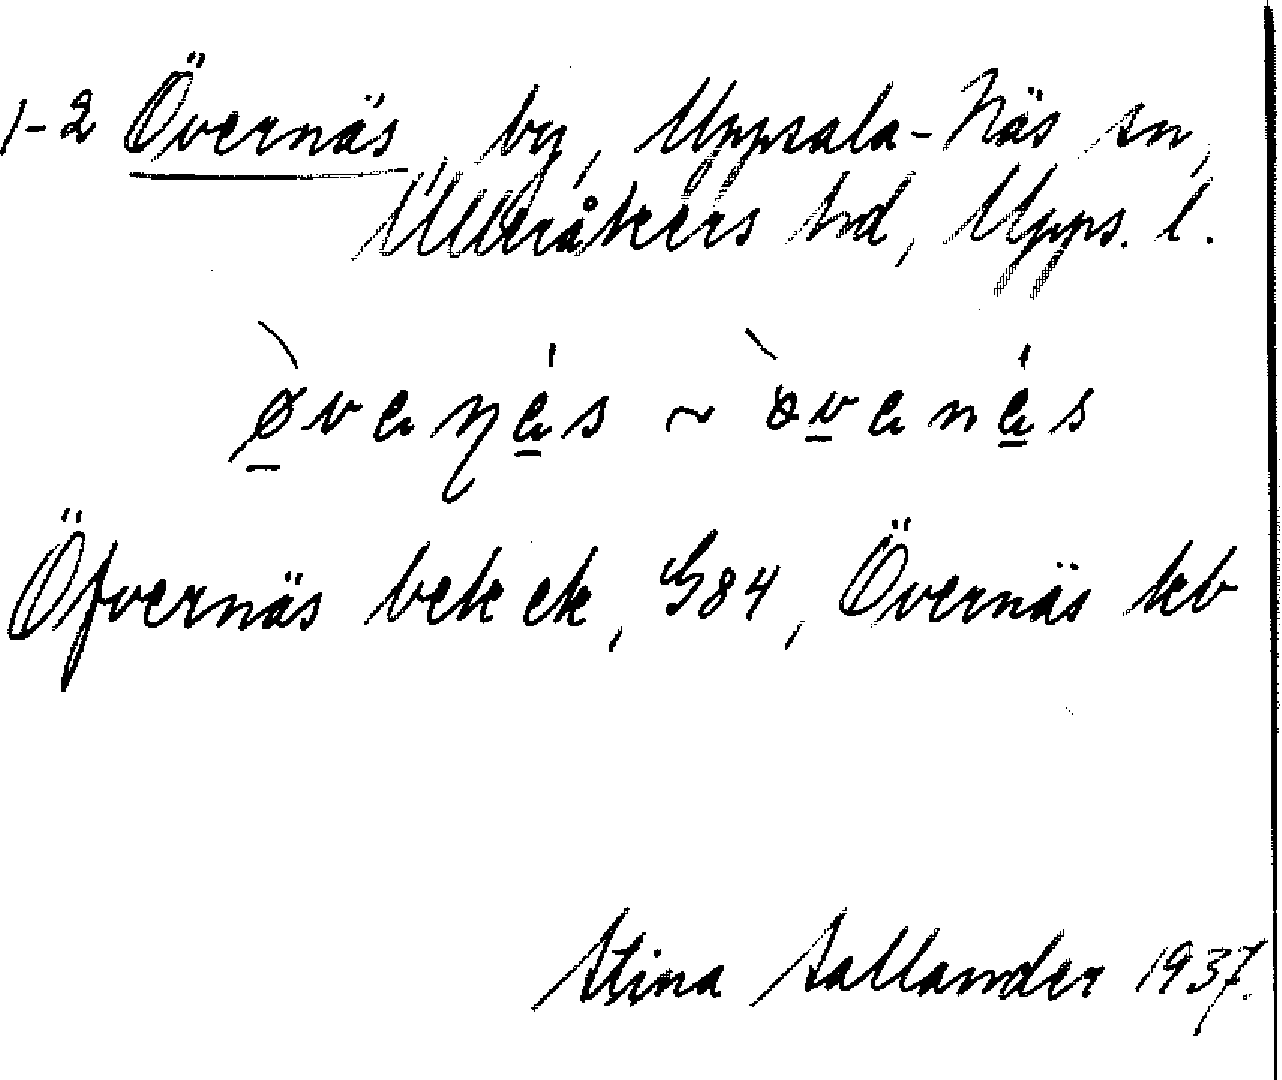 1-2 Övernäs, by, Uppsala-Näs sn,
Ulleråkers hd, Upps. l.
Öfvernäs bek ek, G84, Övernäs kb
Stina Sallander 1937.